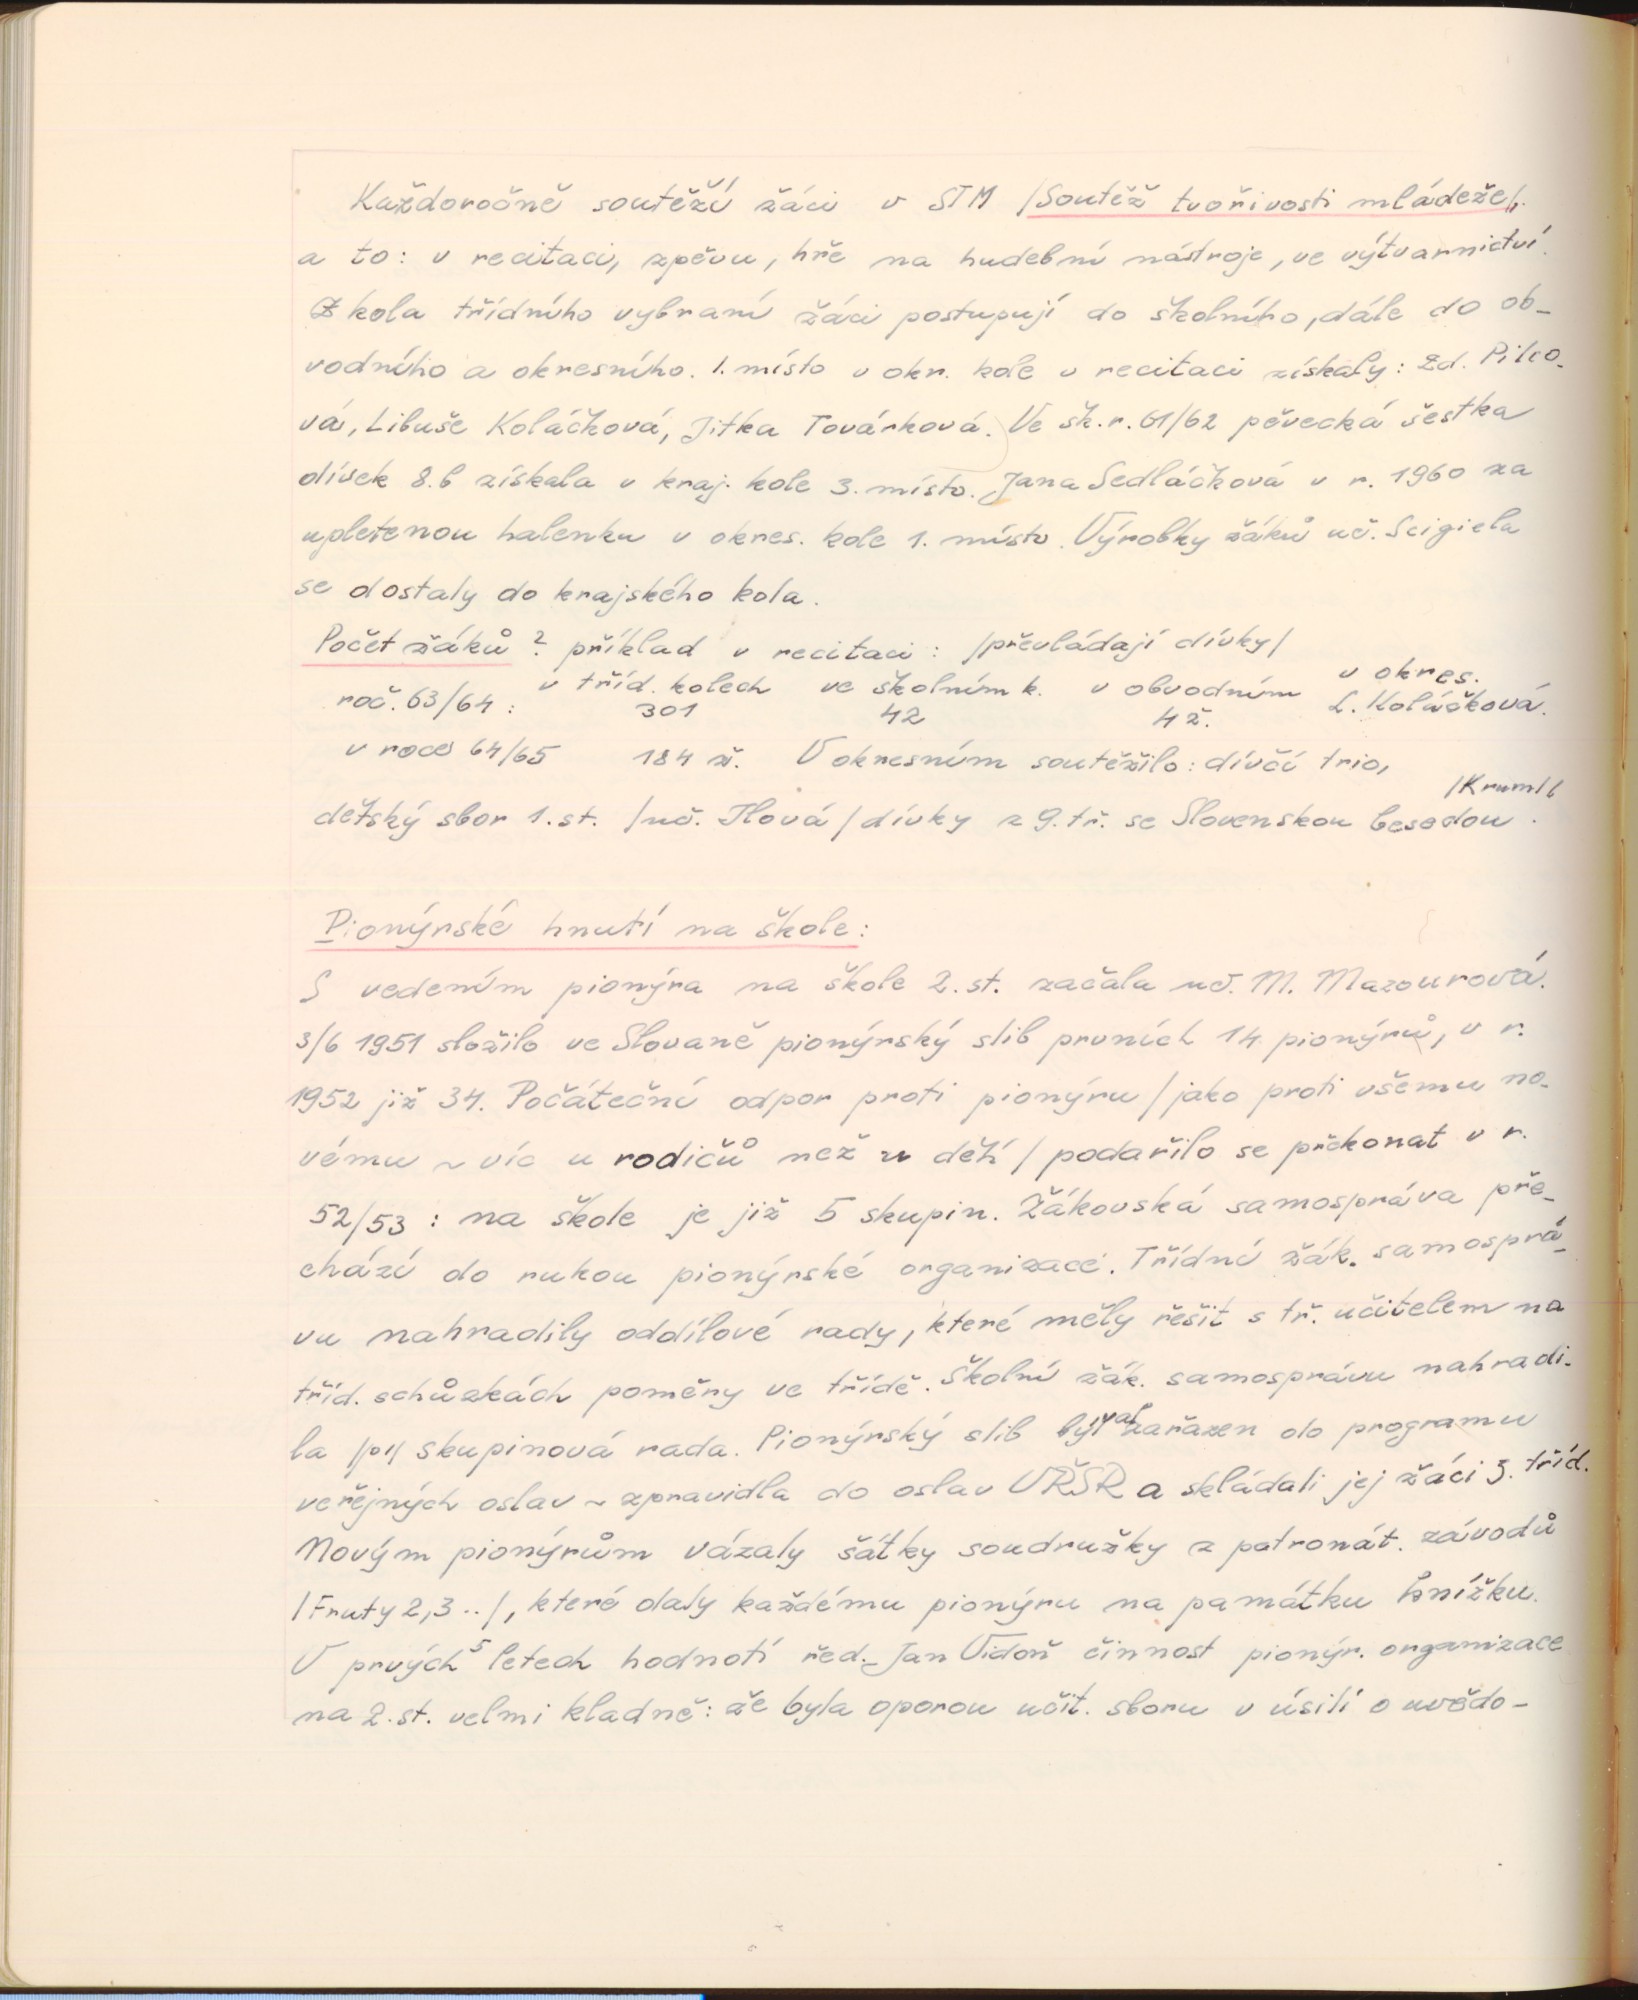 Každoročně soutěží žáci v STM /Soutěž tvořivosti mládeže/,
a to: v recitaci, zpěvu, hře na hudební nástroje, ve výtvarnictví.
Z kola třídního vybraní žáci postupují do školního, dále do ob-
vodního a okresního. 1. místo v okr. kole v recitaci získaly: Zd. Pilco-
vá, Libuše Koláčková, Jitka Továrková. Ve šk. r. 61/62 pěvecká šestka
dívek 8.b získala v kraj. kole 3. místo. Jana Sedláčková v r. 1960 za
upletenou halenku v okres. kole 1. místo. Výrobky žáků uč. Scigiela
se dostaly do krajského kola.
Počet žáků? příklad v recitaci: /převládají dívky/
roč. 63/64: v tříd. kolech ve školním k. v obvodním v okres.
301 42 4 ž. L. Koláčková.
v roce 64/65 184 ž. V okresním soutěžilo: dívčí trio,
dětský sbor 1. st. /uč. Jlová/ dívky z 9. tř. se Slovenskou besedou /Kruml/.
Pionýrské hnutí na škole:
S vedením pionýra na škole 2. st. začala uč. M. Mazourová.
3/6 1951 složilo ve Slovaně pionýrský slib prvních 14 pionýrů, v r.
1952 již 34. Počáteční odpor proti pionýru /jako proti všemu no-
vému ~ víc u rodičů než u dětí/ podařilo se překonat v r.
52/53: na škole je již 5 skupin. Žákovská samospráva pře-
chází do rukou pionýrské organizace. Třídní žák. samosprá-
vu nahradily oddílové rady, které měly řešit s tř. učitelem na
tříd. schůzkách poměry ve třídě. Školní žák. samosprávu nahradi-
la /pi/ skupinová rada. Pionýrský slib býval zařazen do programu
veřejných oslav ~ zpravidla do oslav VŘSR a skládali jej žáci 3. tříd.
Novým pionýrům vázaly šátky soudružky z patronát. závodů
/Fruty 2, 3 ../, které daly každému pionýru na památku knížku.
V prvých 5 letech hodnotí řed. Jan Vidoň činnost pionýr. organizace
na 2. st. velmi kladně: že byla oporou učit. sboru v úsilí o uvědo-